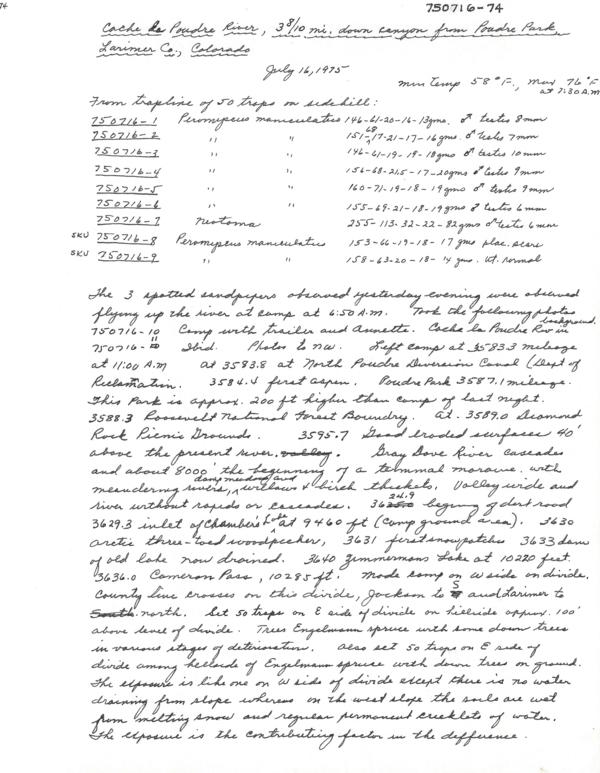 74
750716-74
Cache la Poudre River, 3 8/10 mi. down canyon from Poudre Park,
Larimer Co., Colorado
July 16, 1975
min temp 58°F., max 76°F
at 7:30 A.M
From trapline of 50 traps on sidehill:
750716-1 Peromyscus maniculatus 146-61-20-16-13gms. ♂ testis 8mm
750716-2 " " 151-68-17-21-17-16gms. ♂ testis 7mm
750716-3 " " 146-61-19-19-18gms ♂ testis 10mm
750716-4 " " 156-68-21.5-17-20gms ♂ testis 9mm
750716-5 " " 160-71-19-18-19gms ♂ testis 9mm
750716-6 " " 155-69-21-18-19gms ♂ testis 6mm
750716-7 Neotoma 255-113-32-22-82gms ♂ testis 6mm
SKU 750716-8 Peromyscus maniculatus 153-66-19-18-17gms plac. scars
SKU 750716-9 " " 158-63-20-18-14gms. ut. normal
The 3 spotted sandpipers observed yesterday evening were observed
flying up the river at camp at 6:50 A.M. Took the following photos
750716-10 Camp with trailer and Annette. Cache la Poudre Riv in background.
750716-11 Ibid. Photos to NW. Left camp at 3583.3 mileage
at 11:00 A.M At 3583.8 at North Poudre Diversion Canal (Dept of
Reclamation. 3584.4 first aspen. Poudre Park 3587.1 mileage.
This Park is approx. 200 ft higher than camp of last night.
3588.3 Roosevelt National Forest Boundry. At 3589.0 Diamond
Rock Picnic Grounds. 3595.7 Good eroded surfaces 40'
above the present river. valley. Gray Dove River cascades
and about 8000' the beginning of a terminal moraine with
meandering rivers, damp meadows and willows & birch thickets. Valley wide and
river without rapids or cascades. 3624.9 begining of dirt road
3629.3 inlet of Chambers Lake at 9460 ft (Camp ground area). 3630
arctic three-toed woodpecker, 3631 first snow patches 3633 dam
of old lake now drained. 3640 Zimmermans Lake at 10220 feet.
3636.0 Cameron Pass, 10285 ft. Made camp on W side on divide.
County line crosses on this divide, Jackson to S and Larimer to
South north. Set 50 traps on E side of divide on hillside approx. 100'
above level of divide. Trees Engelmann spruce with some down trees
in various stages of deterioration. Also set 50 traps on E side of
divide among hillside of Engelmann spruce with down trees on ground.
The exposure is like one on W side of divide except there is no water
draining from slope whereas on the west slope the soils are wet
from melting snow and regular permanent creeklets of water.
The exposure is the contributing factor in the difference.